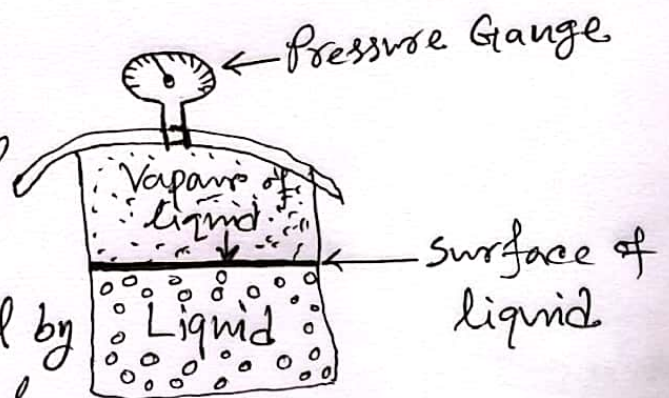 Pressure Gauge
Vapours of
liquid
Surface of
liquid
Liquid
by